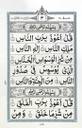 قُلْ أَعُوذُ بِرَبِّ النَّاسِ
مَلِكِ النَّاسِ إِلَٰهِ النَّاسِ
مِنْ شَرِّ الْوَسْوَاسِ الْخَنَّاسِ
الَّذِي يُوَسْوِسُ فِي صُدُورِ
النَّاسِ مِنَ الْجِنَّةِ وَالنَّاسِ
قُلْ أَعُوذُ بِرَبِّ الْفَلَقِ
مِنْ شَرِّ مَا خَلَقَ وَمِنْ